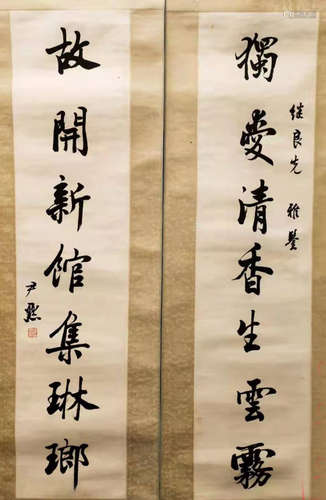 獨愛清香生雲霧
继良先 雅鑒
故開新館集琳瑯
尹默